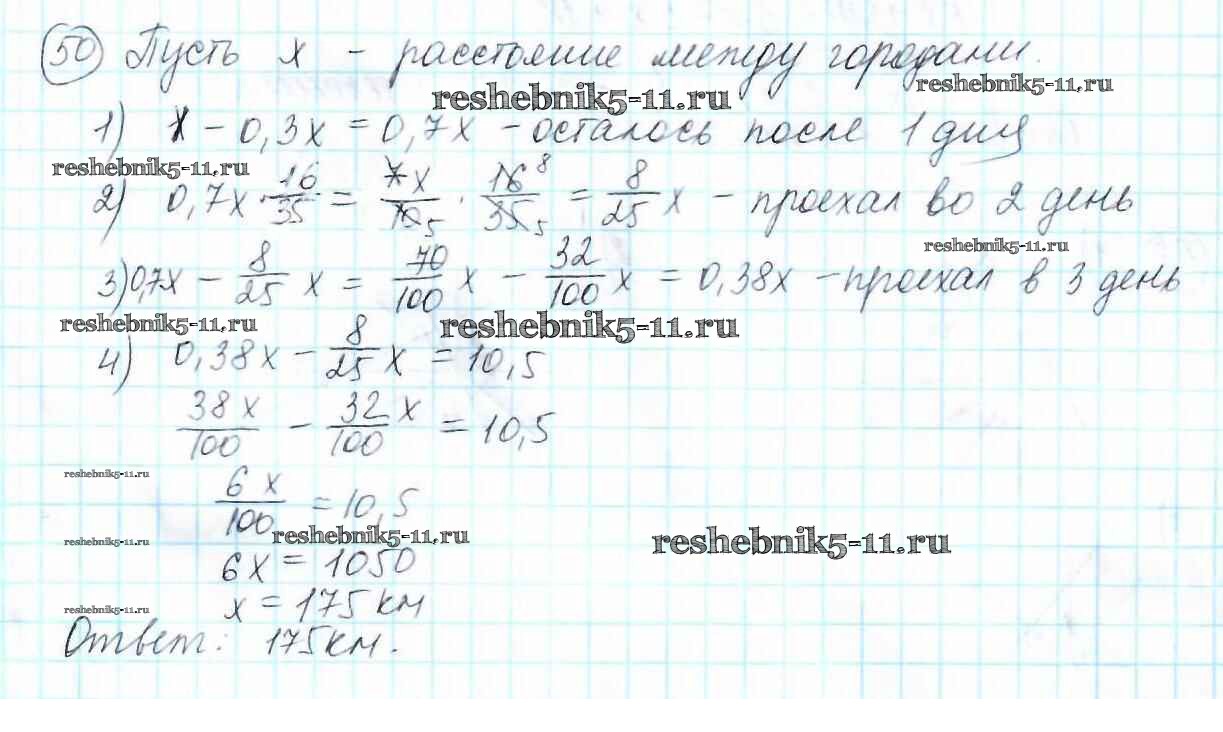 50 Пусть x - расстояние между городами.
reshebnik5-11.ru
reshebnik5-11.ru
1) x - 0,3x = 0,7x - осталось после 1 дня
reshebnik5-11.ru
2) 0,7x · 16/35 = 7x/10 5 · 16 8/35 5 = 8/25 x - проехал во 2 день
reshebnik5-11.ru
3) 0,7x - 8/25 x = 70/100 x - 32/100 x = 0,38x - проехал в 3 день
reshebnik5-11.ru
reshebnik5-11.ru
4) 0,38x - 8/25 x = 10,5
38x/100 - 32/100 x = 10,5
reshebnik5-11.ru
6x/100 = 10,5
reshebnik5-11.ru
reshebnik5-11.ru
reshebnik5-11.ru
6x = 1050
x = 175 км
reshebnik5-11.ru
Ответ: 175 км.